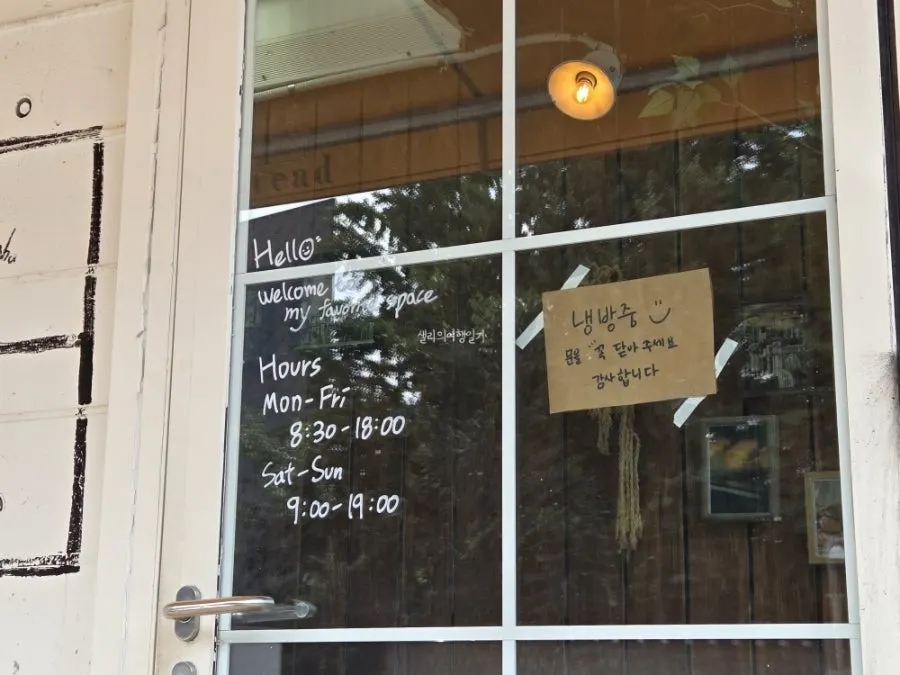 Hello
welcome
my favorite space
샐리의여행일기
Hours
Mon-Fri
8:30-18:00
Sat-Sun
9:00-19:00
냉방중
문을 꼭 닫아 주세요
감사합니다